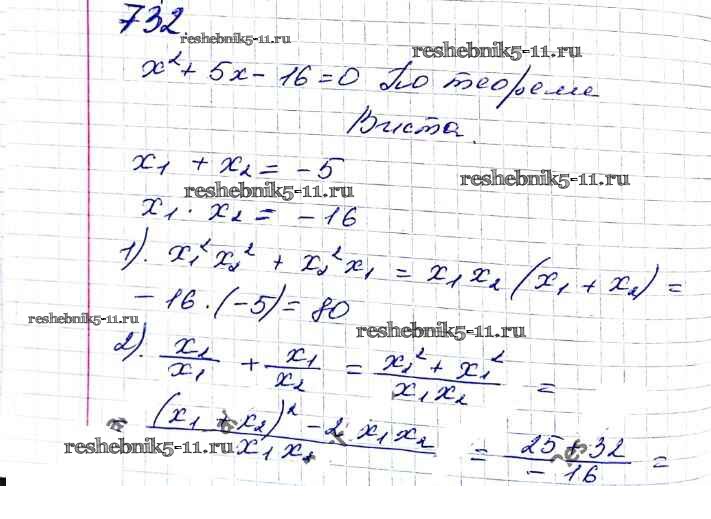 732.
reshebnik5-11.ru
reshebnik5-11.ru
x² + 5x - 16 = 0 По теореме
Виета.
x₁ + x₂ = -5
reshebnik5-11.ru
reshebnik5-11.ru
x₁ · x₂ = -16
1). x₁² x₂² + x₂² x₁ = x₁ x₂ (x₁ + x₂) =
- 16 · (-5) = 80
reshebnik5-11.ru
reshebnik5-11.ru
2). x₂/x₁ + x₁/x₂ = (x₁² + x₁²)/(x₁ x₂) =
= ((x₁ + x₂)² - 2 x₁ x₂)/(x₁ x₂) = (25 + 32)/(-16) =
reshebnik5-11.ru